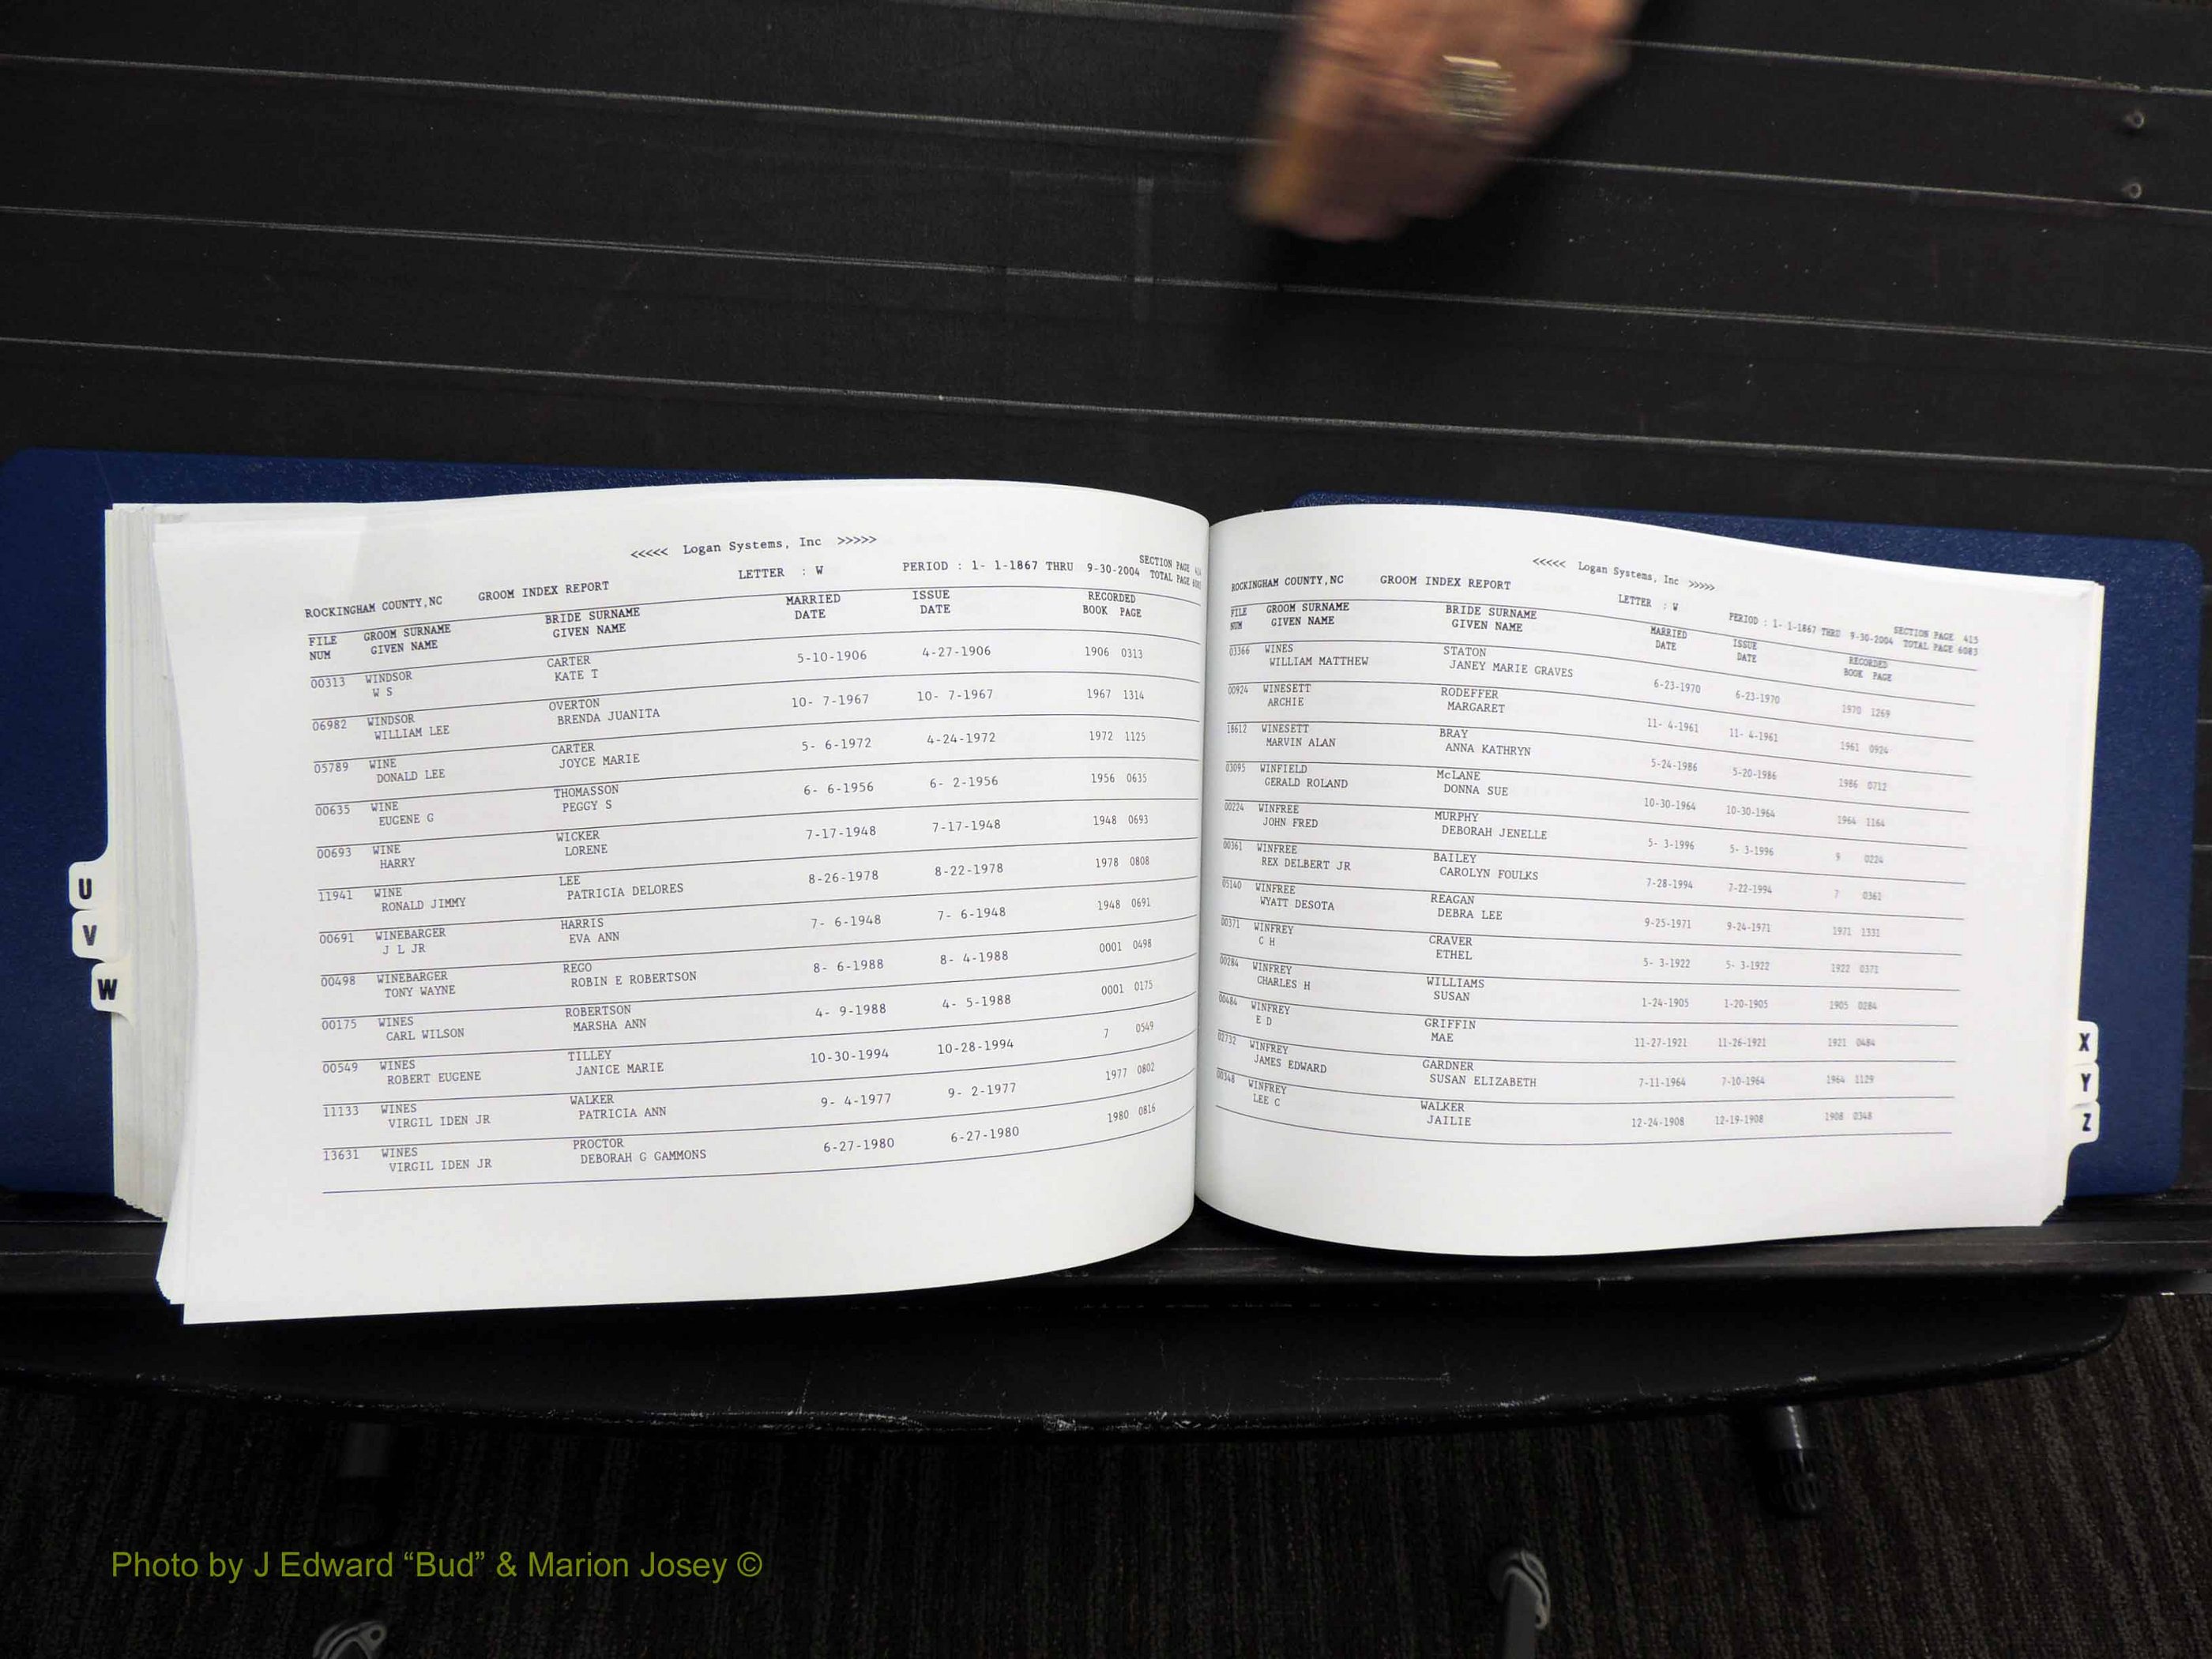 <<<<< Logan Systems, Inc >>>>>
ROCKINGHAM COUNTY,NC GROOM INDEX REPORT LETTER : W PERIOD : 1- 1-1867 THRU 9-30-2004 SECTION PAGE
TOTAL PAGE
FILE GROOM SURNAME BRIDE SURNAME MARRIED ISSUE RECORDED
NUM GIVEN NAME GIVEN NAME DATE DATE BOOK PAGE
00313 WINDSOR CARTER 5-10-1906 4-27-1906 1906 0313
W S KATE T
06982 WINDSOR OVERTON 10- 7-1967 10- 7-1967 1967 1314
WILLIAM LEE BRENDA JUANITA
05789 WINE CARTER 5- 6-1972 4-24-1972 1972 1125
DONALD LEE JOYCE MARIE
00635 WINE THOMASSON 6- 6-1956 6- 2-1956 1956 0635
EUGENE G PEGGY S
00693 WINE WICKER 7-17-1948 7-17-1948 1948 0693
HARRY LORENE
11941 WINE LEE 8-26-1978 8-22-1978 1978 0808
RONALD JIMMY PATRICIA DELORES
00691 WINEBARGER HARRIS 7- 6-1948 7- 6-1948 1948 0691
J L JR EVA ANN
00498 WINEBARGER REGO 8- 6-1988 8- 4-1988 0001 0498
TONY WAYNE ROBIN E ROBERTSON
00175 WINES ROBERTSON 4- 9-1988 4- 5-1988 0001 0175
CARL WILSON MARSHA ANN
00549 WINES TILLEY 10-30-1994 10-28-1994 7 0549
ROBERT EUGENE JANICE MARIE
11133 WINES WALKER 9- 4-1977 9- 2-1977 1977 0802
VIRGIL IDEN JR PATRICIA ANN
13631 WINES PROCTOR 6-27-1980 6-27-1980 1980 0816
VIRGIL IDEN JR DEBORAH G GAMMONS
U
V
W
<<<<< Logan Systems, Inc >>>>>
ROCKINGHAM COUNTY,NC GROOM INDEX REPORT LETTER : W PERIOD : 1- 1-1867 THRU 9-30-2004 SECTION PAGE 415
TOTAL PAGE 6083
FILE GROOM SURNAME BRIDE SURNAME MARRIED ISSUE RECORDED
NUM GIVEN NAME GIVEN NAME DATE DATE BOOK PAGE
03366 WINES STATON 6-23-1970 6-23-1970 1970 1269
WILLIAM MATTHEW JANEY MARIE GRAVES
00924 WINESETT RODEFFER 11- 4-1961 11- 4-1961 1961 0924
ARCHIE MARGARET
18612 WINESETT BRAY 5-24-1986 5-20-1986 1986 0712
MARVIN ALAN ANNA KATHRYN
03095 WINFIELD McLANE 10-30-1964 10-30-1964 1964 1164
GERALD ROLAND DONNA SUE
00224 WINFREE MURPHY 5- 3-1996 5- 3-1996 9 0224
JOHN FRED DEBORAH JENELLE
00361 WINFREE BAILEY 7-28-1994 7-22-1994 7 0361
REX DELBERT JR CAROLYN FOULKS
05140 WINFREE REAGAN 9-25-1971 9-24-1971 1971 1331
WYATT DESOTA DEBRA LEE
00371 WINFREY CRAVER 5- 3-1922 5- 3-1922 1922 0371
C H ETHEL
00284 WINFREY WILLIAMS 1-24-1905 1-20-1905 1905 0284
CHARLES H SUSAN
00484 WINFREY GRIFFIN 11-27-1921 11-26-1921 1921 0484
E D MAE
02732 WINFREY GARDNER 7-11-1964 7-10-1964 1964 1129
JAMES EDWARD SUSAN ELIZABETH
00348 WINFREY WALKER 12-24-1908 12-19-1908 1908 0348
LEE C JAILIE
X
Y
Z
Photo by J Edward “Bud” & Marion Josey ©